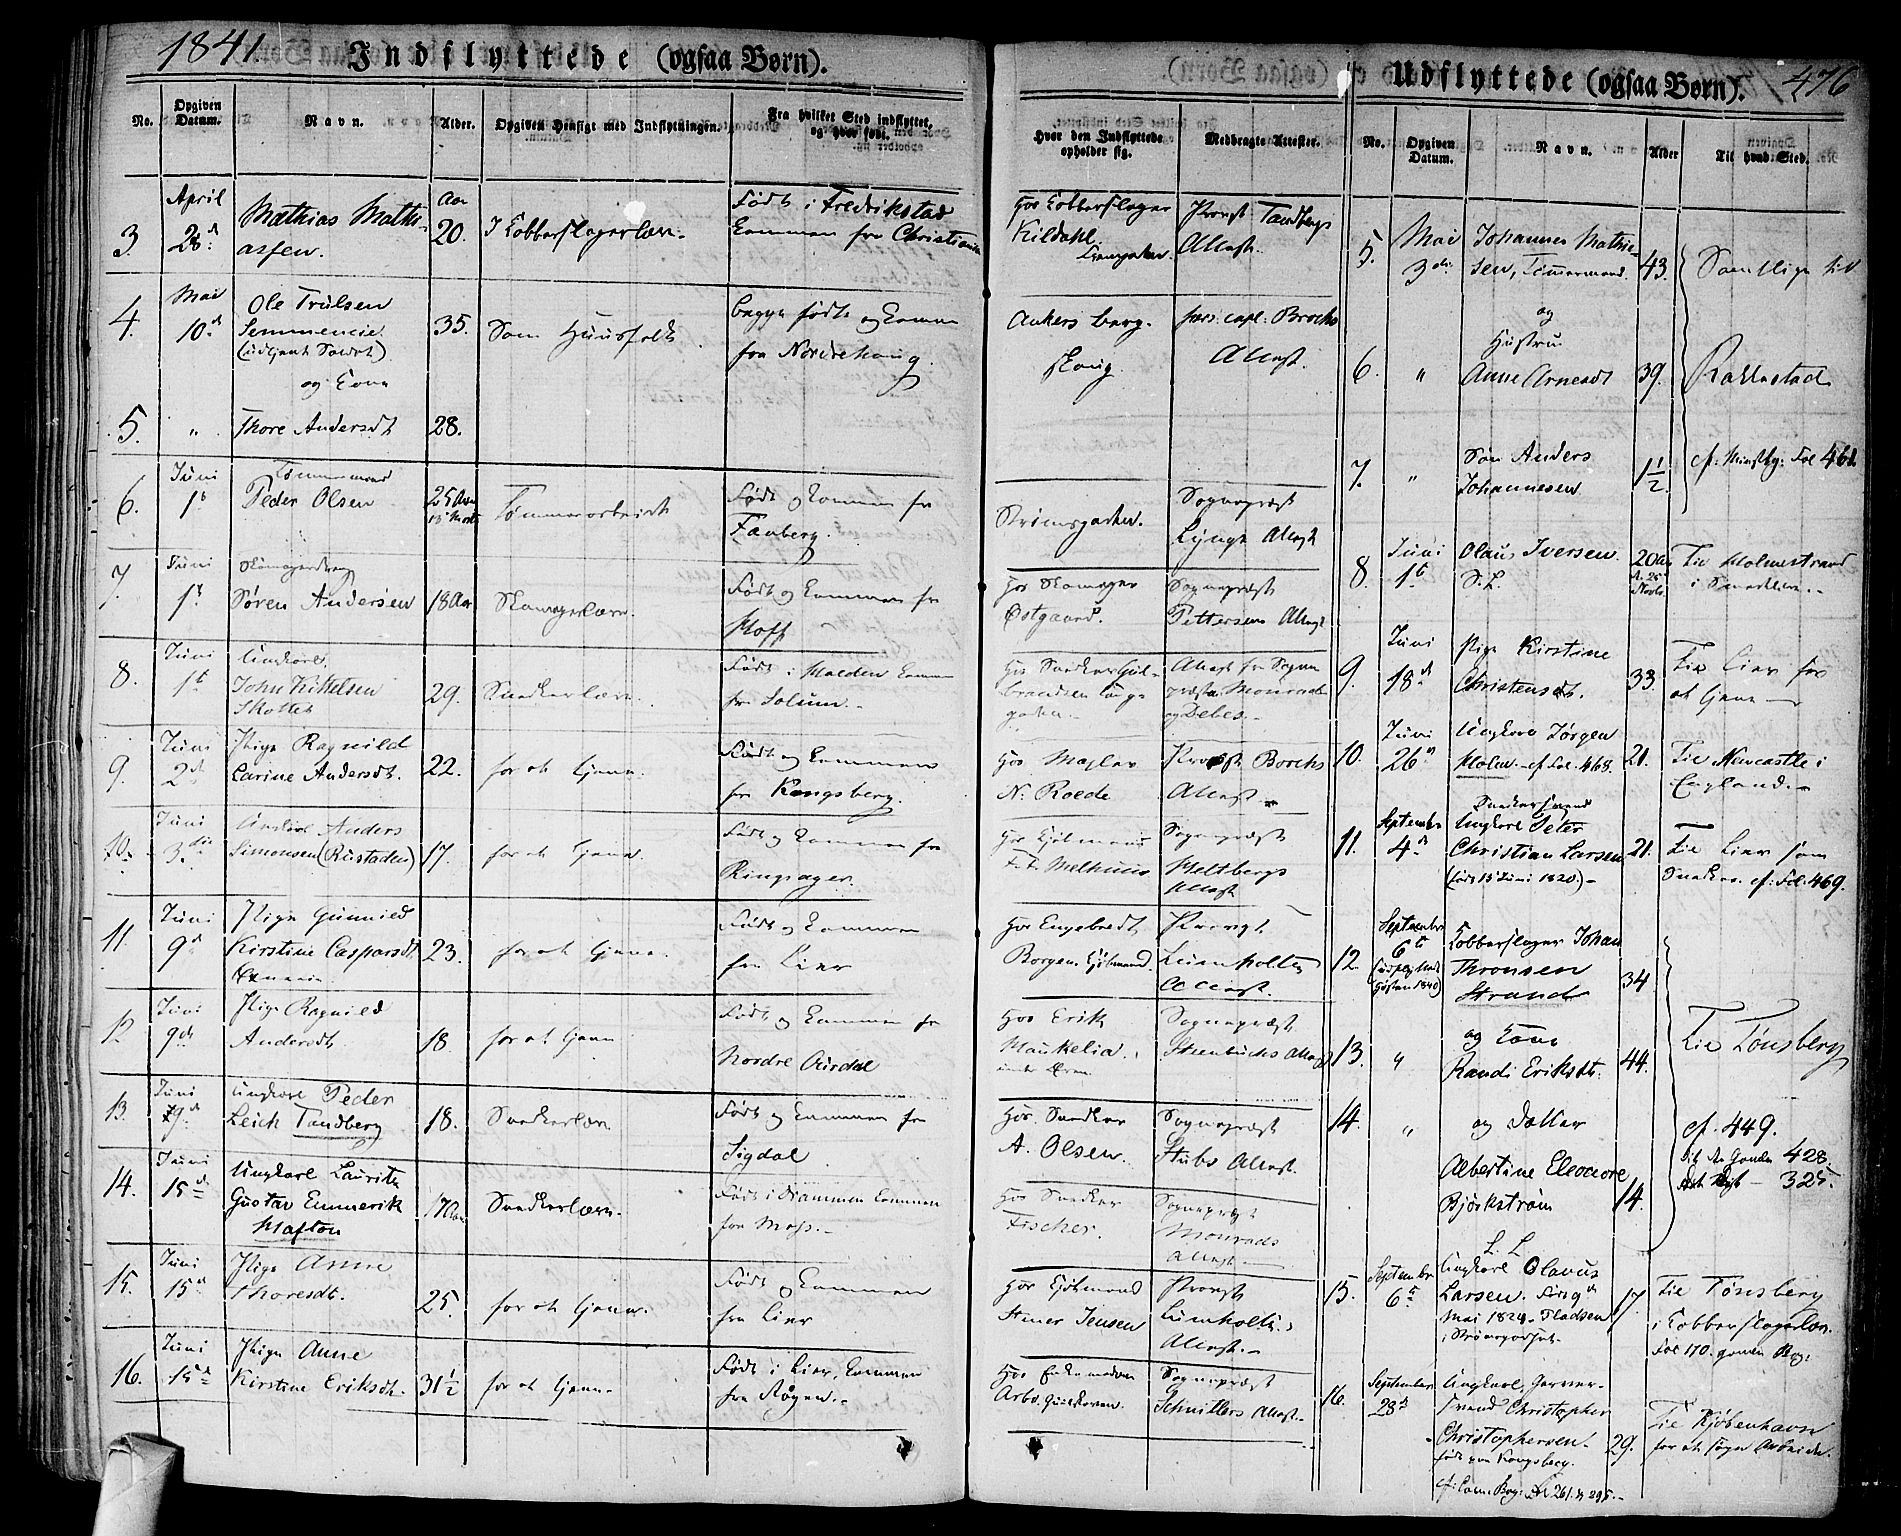 1841
Indflyttede (ogsaa Børn).
No.
Opgiven Datum.
Navn.
Alder.
Opgiven Hensigt med Indflytningen.
Fra hvilket Sted indflyttet, og hvor fød.
Hvor den Indflyttede opholder sig.
Medbragte Attester.
3.
April
28d
Mathias Mathi-
assen.
Aar
20.
I Kobberslagerlære.
Født i Fredrikstad
Kommen fra Christiania
Hos Kobberslager
Kildahl
Provst Tandbergs
Attest.
4.
Mai
10d
Ole Trulsen
Semmeneie
og Kone
35.
Som Huusfolk
Begge født og Komne
fra Norderhoug.
Ankers berg.
skoug.
pers: capl: Brochs
Attest.
5.
"
Thore Andersdt
28.
6.
Juni
1t
Tømmermand
Peder Olsen
25 Aar
Tømmerarbeide
Født og Kommen fra
Faaberg.
Strømsgaden.
Sognepræst
Lynge Attest
7.
Juni
1t
Søren Andersen
18 Aar
Skomagerlære.
Født og Kommen fra
Hoff
Hos Skomager
Østgaard.
Sognepræst
Pettersens Attest
8.
Juni
1t
Ungkarl.
John Kittelsen
Skotte
29.
Snedkerlære.
Født i Halden Kommen
fra Solum.
Hos Snedker Gul-
brandsen Lange
gaden.
Attest fra Sogne
præst Monrad
og Debes.
9.
Juni
2d
Pige Ragnild
Carine Andersdt.
22.
for at tjene.
Født og Kommen
fra Kongsberg.
Hos Mægler
N. Roede
Provst Borchs
Attest.
10.
Juni
3die
Ungkarl Anders
Simonsen (Rustaden)
17.
for at tjene.
Født og Kommen fra
Ringsager.
Hos Kjøbmand
Fr. Melhuus
Sognepræst
Heltbergs
Attest
11.
Juni
9d
Pige Gunnild
Kirstine Caspersdt
23.
for at tjene.
Født og Kommen
fra Lier
Hos Engebredt
Borgen Kjøbmand.
Provst
Lumholtz
Attest.
12
Juni
9de
Pige Ragnild
Andersdt.
18.
for at tjene
Født og Kommen fra
Nordre Aurdal
Hos Erik
Haukelia.
Sognepræst
Steenbuchs Attest
13.
Juni
9d
Ungkarl Peder
Leich Tandberg
18.
Snedkerlære
Født og Kommen fra
Sigdal
Hos Snedker
A. Olsen.
Sognepræst
Stubs Attest.
14.
Juni
15d
Ungkarl Lauritz
Gustav Emmerik
Hafton
17 Aar
Snedkerlære.
Født i Drammen Kommen
fra Moss.
Hos Snedker
Fischer.
Sognepræst
Monrads
Attest.
15.
Juni
15d
Pige Anne
Thoresdt.
25.
for at tjene.
Født og Kommen
fra Lier
Hos Kjøbmand
Provst
Lumholtz
Attest.
16.
Juni
15d
Pige Anne
Kirstine Eriksdt.
31½
for at tjene.
Født i Lier, Kommen
fra Røgen.
Hos Enkemadam
Arbo
Sognepræst
Schnitlers Attest.
Udflyttede (ogsaa Børn).
476
No.
Opgiven Datum.
Navn.
Alder
Til hvad Sted.
5.
Mai
3die
Johannes Mathie-
sen, Tømmermand.
43.
Samtlige til
og
Hustru
6.
"
Anne Arnesdt
39.
Rakkestad
7.
"
Søn Anders
Johannesen
1½
cf: Ministby: Fol 461
8.
Juni
1t
Olaus Iversen.
S. L.
20 Aar
Til Holmestrand
i Snedkerlære.
9.
Juni
18d
Pige Kirstine
Christensdt.
33.
Til Lier for
at tjene
10.
Juni
26d
Ungkarl Jørgen
Holm. cf Fol. 468.
21.
Til Newcastle i
England.
11.
September
4d
Snedkersvend
Ungkarl Peter
Christian Larsen
(født 13 Juni 1820.)
21.
Til Lier som
Snedker. cf: Fol. 469.
12.
September
6t
Kobberslager Johan
Thronsen
Strand
34
og Kone
13.
"
Randi Eriksdt.
44.
Til Tønsberg
14.
"
og Datter
Albertine Eleonore
Bjørkstrøm
14.
cf. 449.
428.
325.
15.
September
6t
L. L
Ungkarl Olavus
Larsen. Født 9d
Mai 1824. Pladsen
17.
Til Tønsberg
i Kobberslagerlære.
Fol 170. gamle Reg:
16.
September
28d
Ungkarl, Garver-
svend Christopher
Christophersen.
født paa Kongsberg.
29.
Til Kjøbenhavn
for at søge Arbeide.